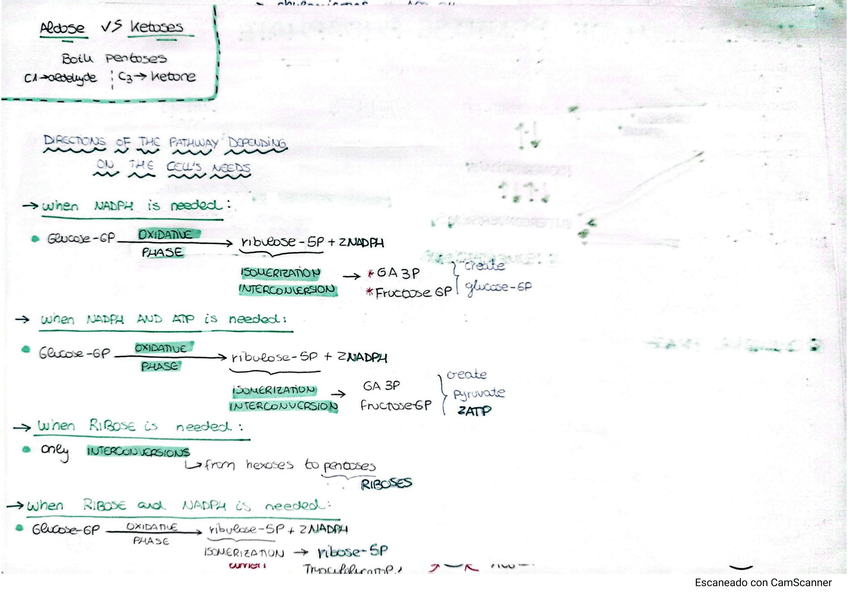 Aldose VS Ketoses
Both pentoses
C1→aldehyde C3→ketone
DIRECTIONS OF THE PATHWAY DEPENDING
ON THE CELL'S NEEDS
→ When NADPH is needed:
• Glucose-6P OXIDATIVE PHASE → ribulose-5P + 2NADPH
ISOMERIZATION → *GA3P create
INTERCONVERSION *Fructose 6P glucose-6P
→ When NADPH AND ATP is needed:
• Glucose-6P OXIDATIVE PHASE → ribulose-5P + 2NADPH
ISOMERIZATION → GA 3P create
INTERCONVERSION Fructose-6P pyruvate
2ATP
→ When RIBOSE is needed:
• only INTERCONVERSIONS
↳from hexoses to pentoses
RIBOSES
→ When RIBOSE and NADPH is needed:
• Glucose-6P OXIDATIVE PHASE → ribulose-5P + 2NADPH
ISOMERIZATION → ribose-5P
Escaneado con CamScanner